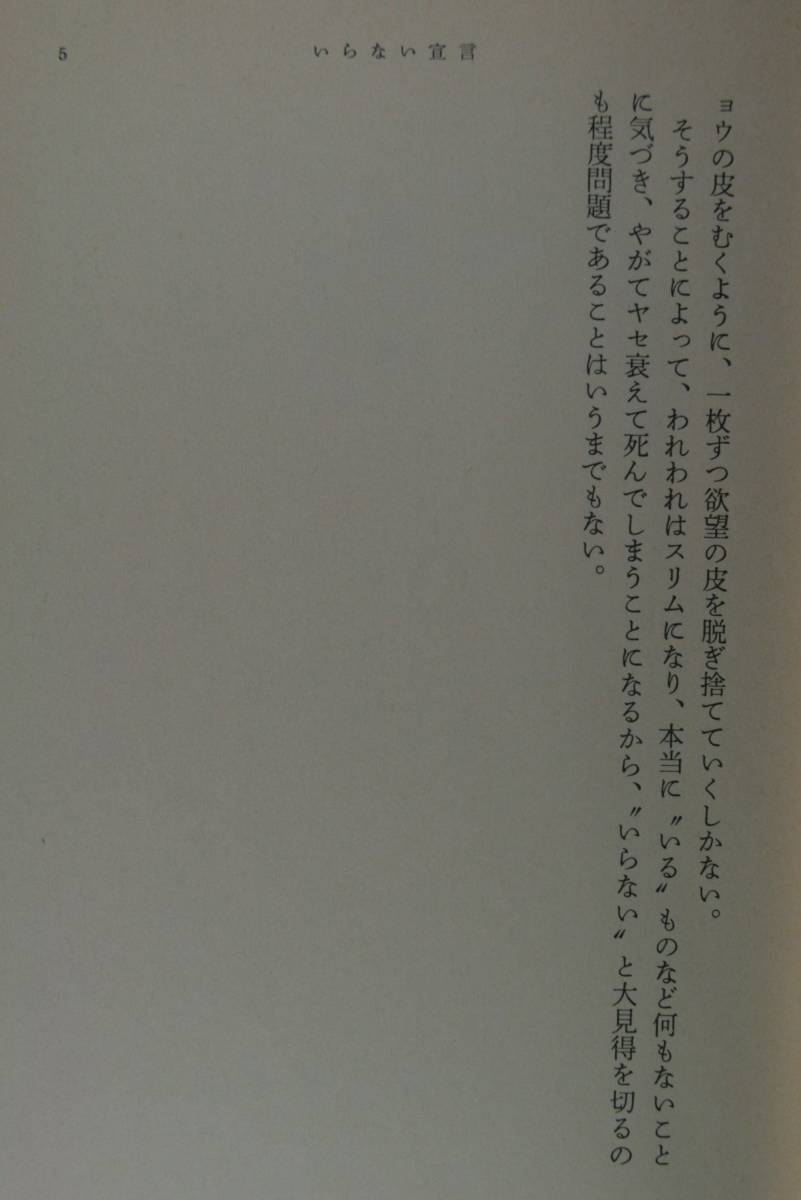 いらない宣言
5
ョウの皮をむくように、一枚ずつ欲望の皮を脱ぎ捨てていくしかない。
そうすることによって、われわれはスリムになり、本当に〝いる〟ものなど何もないこと
に気づき、やがてヤセ衰えて死んでしまうことになるから、〝いらない〟と大見得を切るの
も程度問題であることはいうまでもない。